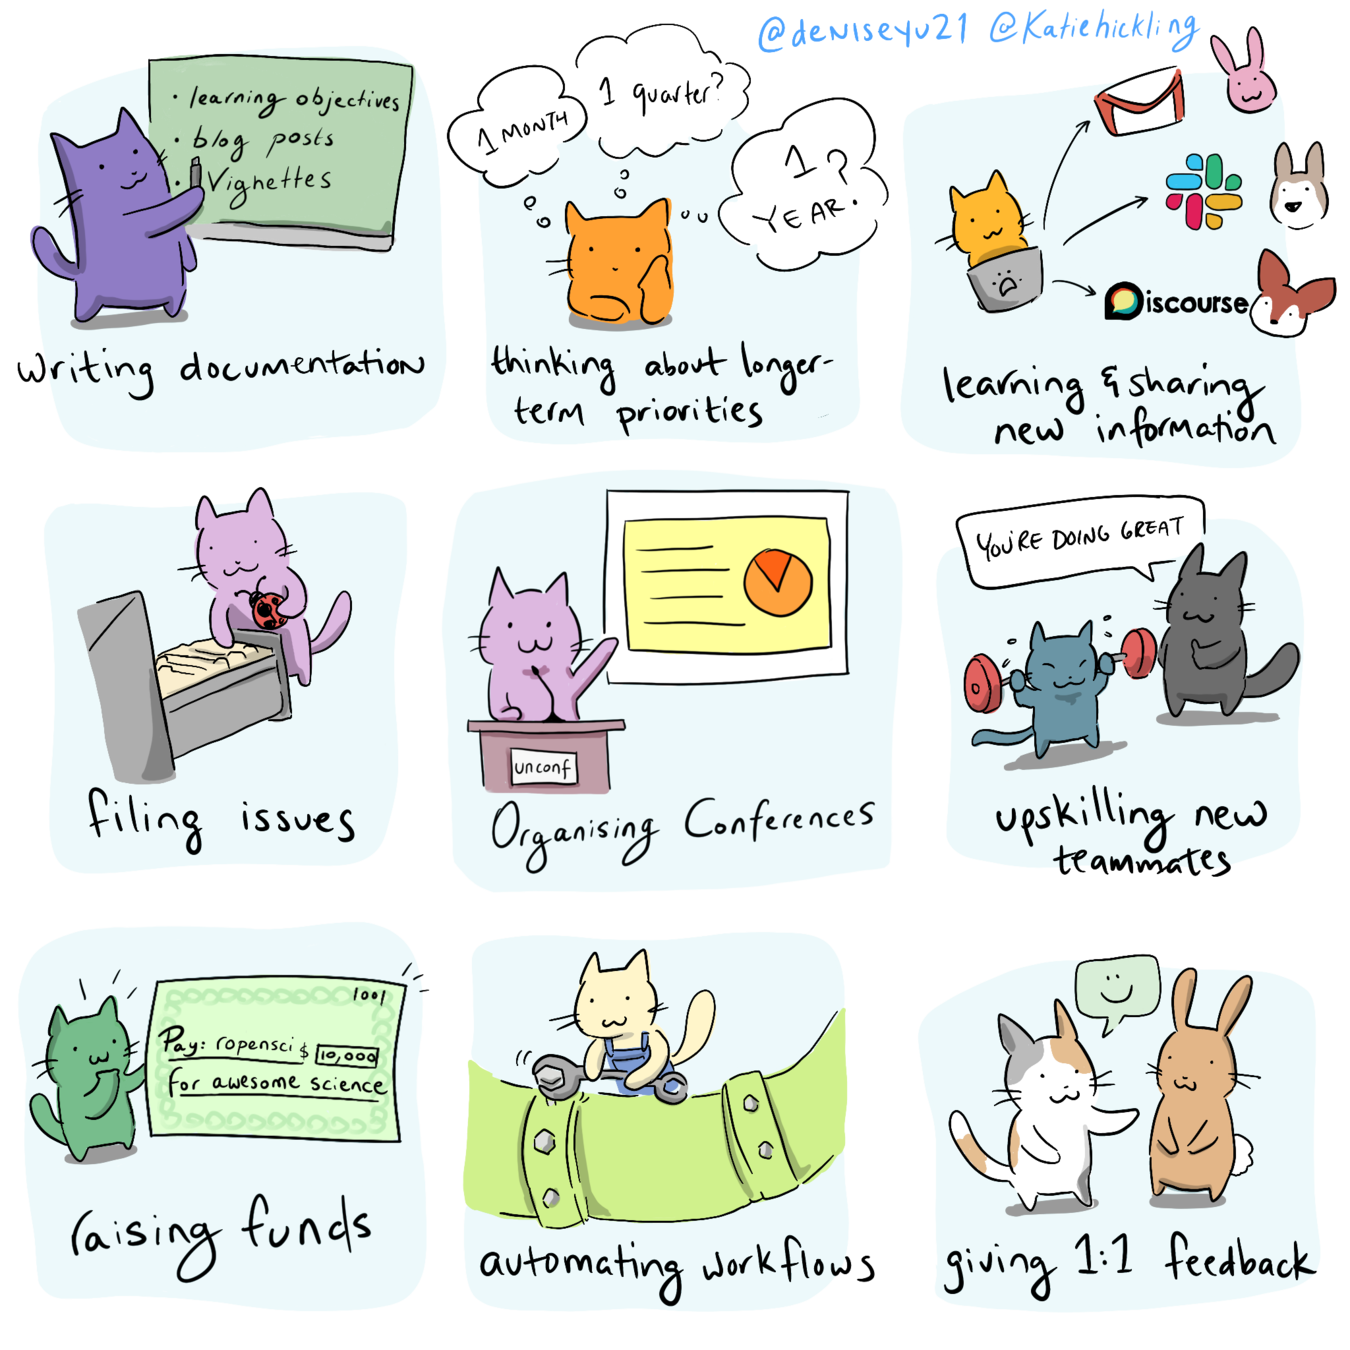 @deniseyu21 @Katiehickling
· learning objectives
· blog posts
· Vignettes
writing documentation
1 MONTH
1 quarter?
1 YEAR?
thinking about longer-
term priorities
Discourse
learning & sharing
new information
filing issues
unconf
Organising Conferences
YOU'RE DOING GREAT
upskilling new
teammates
1001
Pay: ropensci $ 10,000
for awesome science
raising funds
automating workflows
giving 1:1 feedback